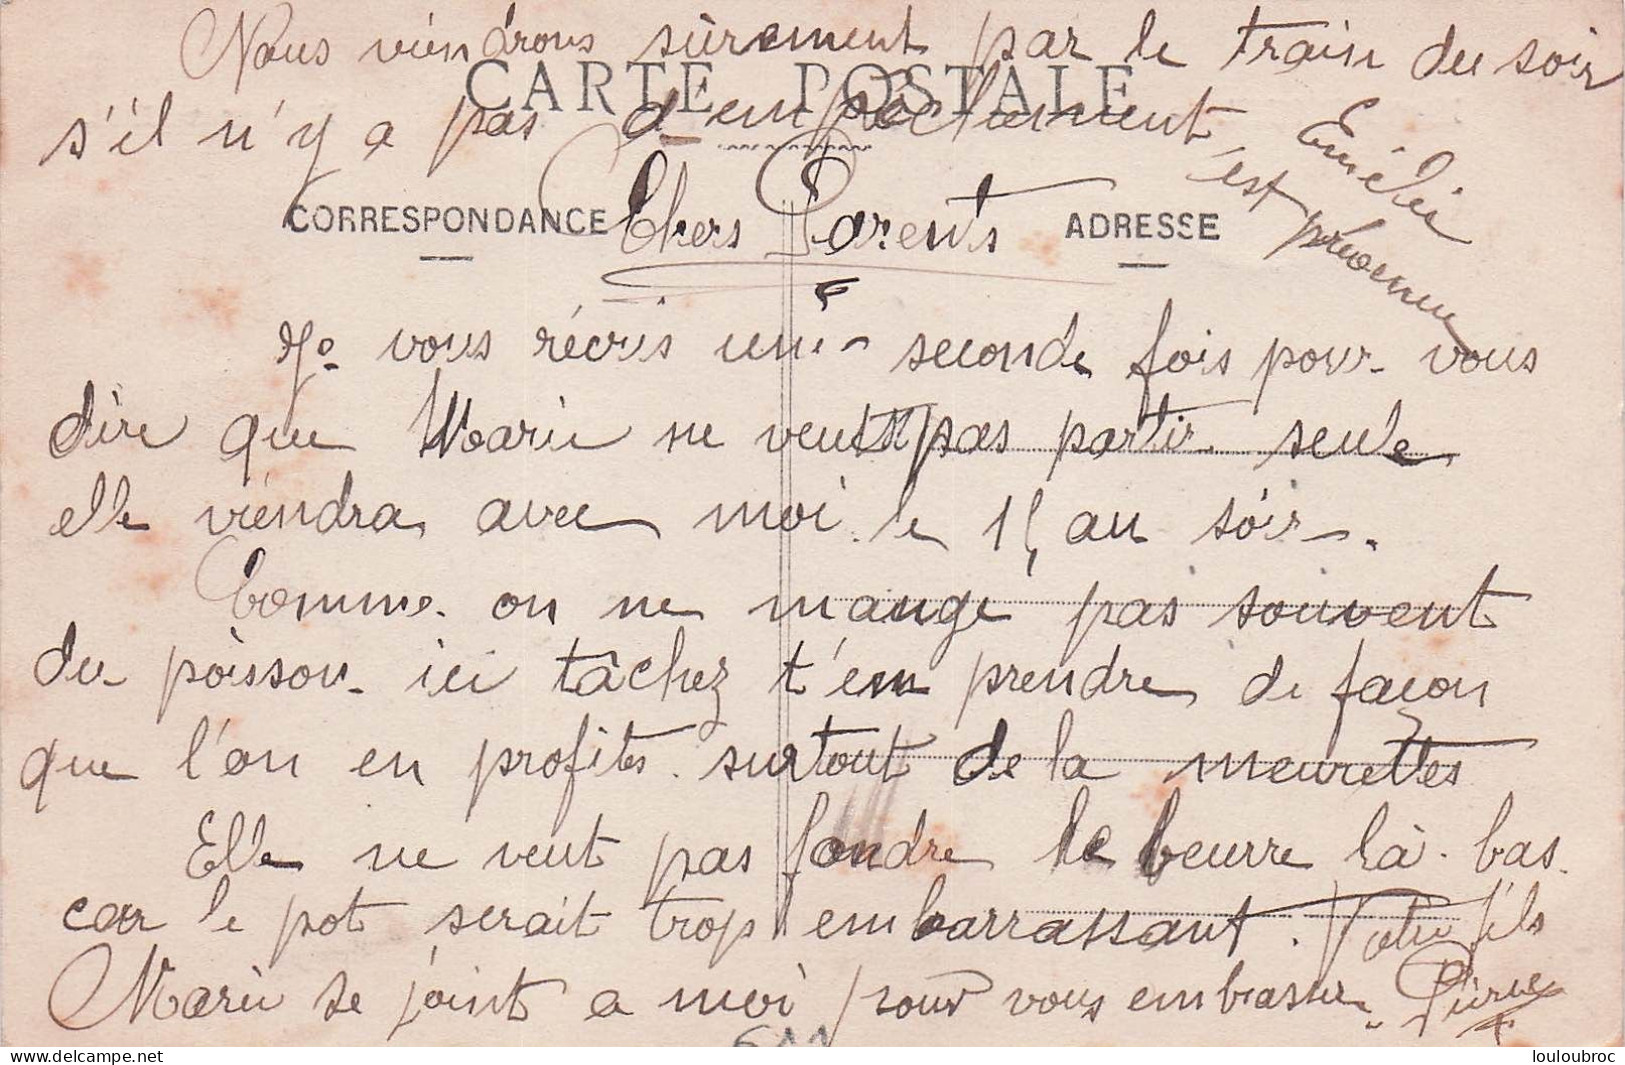 Nous viendrons sûrement par le train du soir
CARTE POSTALE
s'il n'y a pas d'empêchement, Emélie
est prévenue
CORRESPONDANCE
Chers Parents
ADRESSE
Je vous récris une seconde fois pour vous
dire que Marie ne veut pas partir seule
elle viendra avec moi le 14 au soir.
Comme on ne mange pas souvent
du poisson ici tâchez t'em prendre de façon
que l'on en profites surtout de la meurettes
Elle ne veut pas fondre le beurre là-bas
car le pot serait trop embarrassant. Votre fils
Marie se joint a moi pour vous embrasser. Pierre
louloubroc